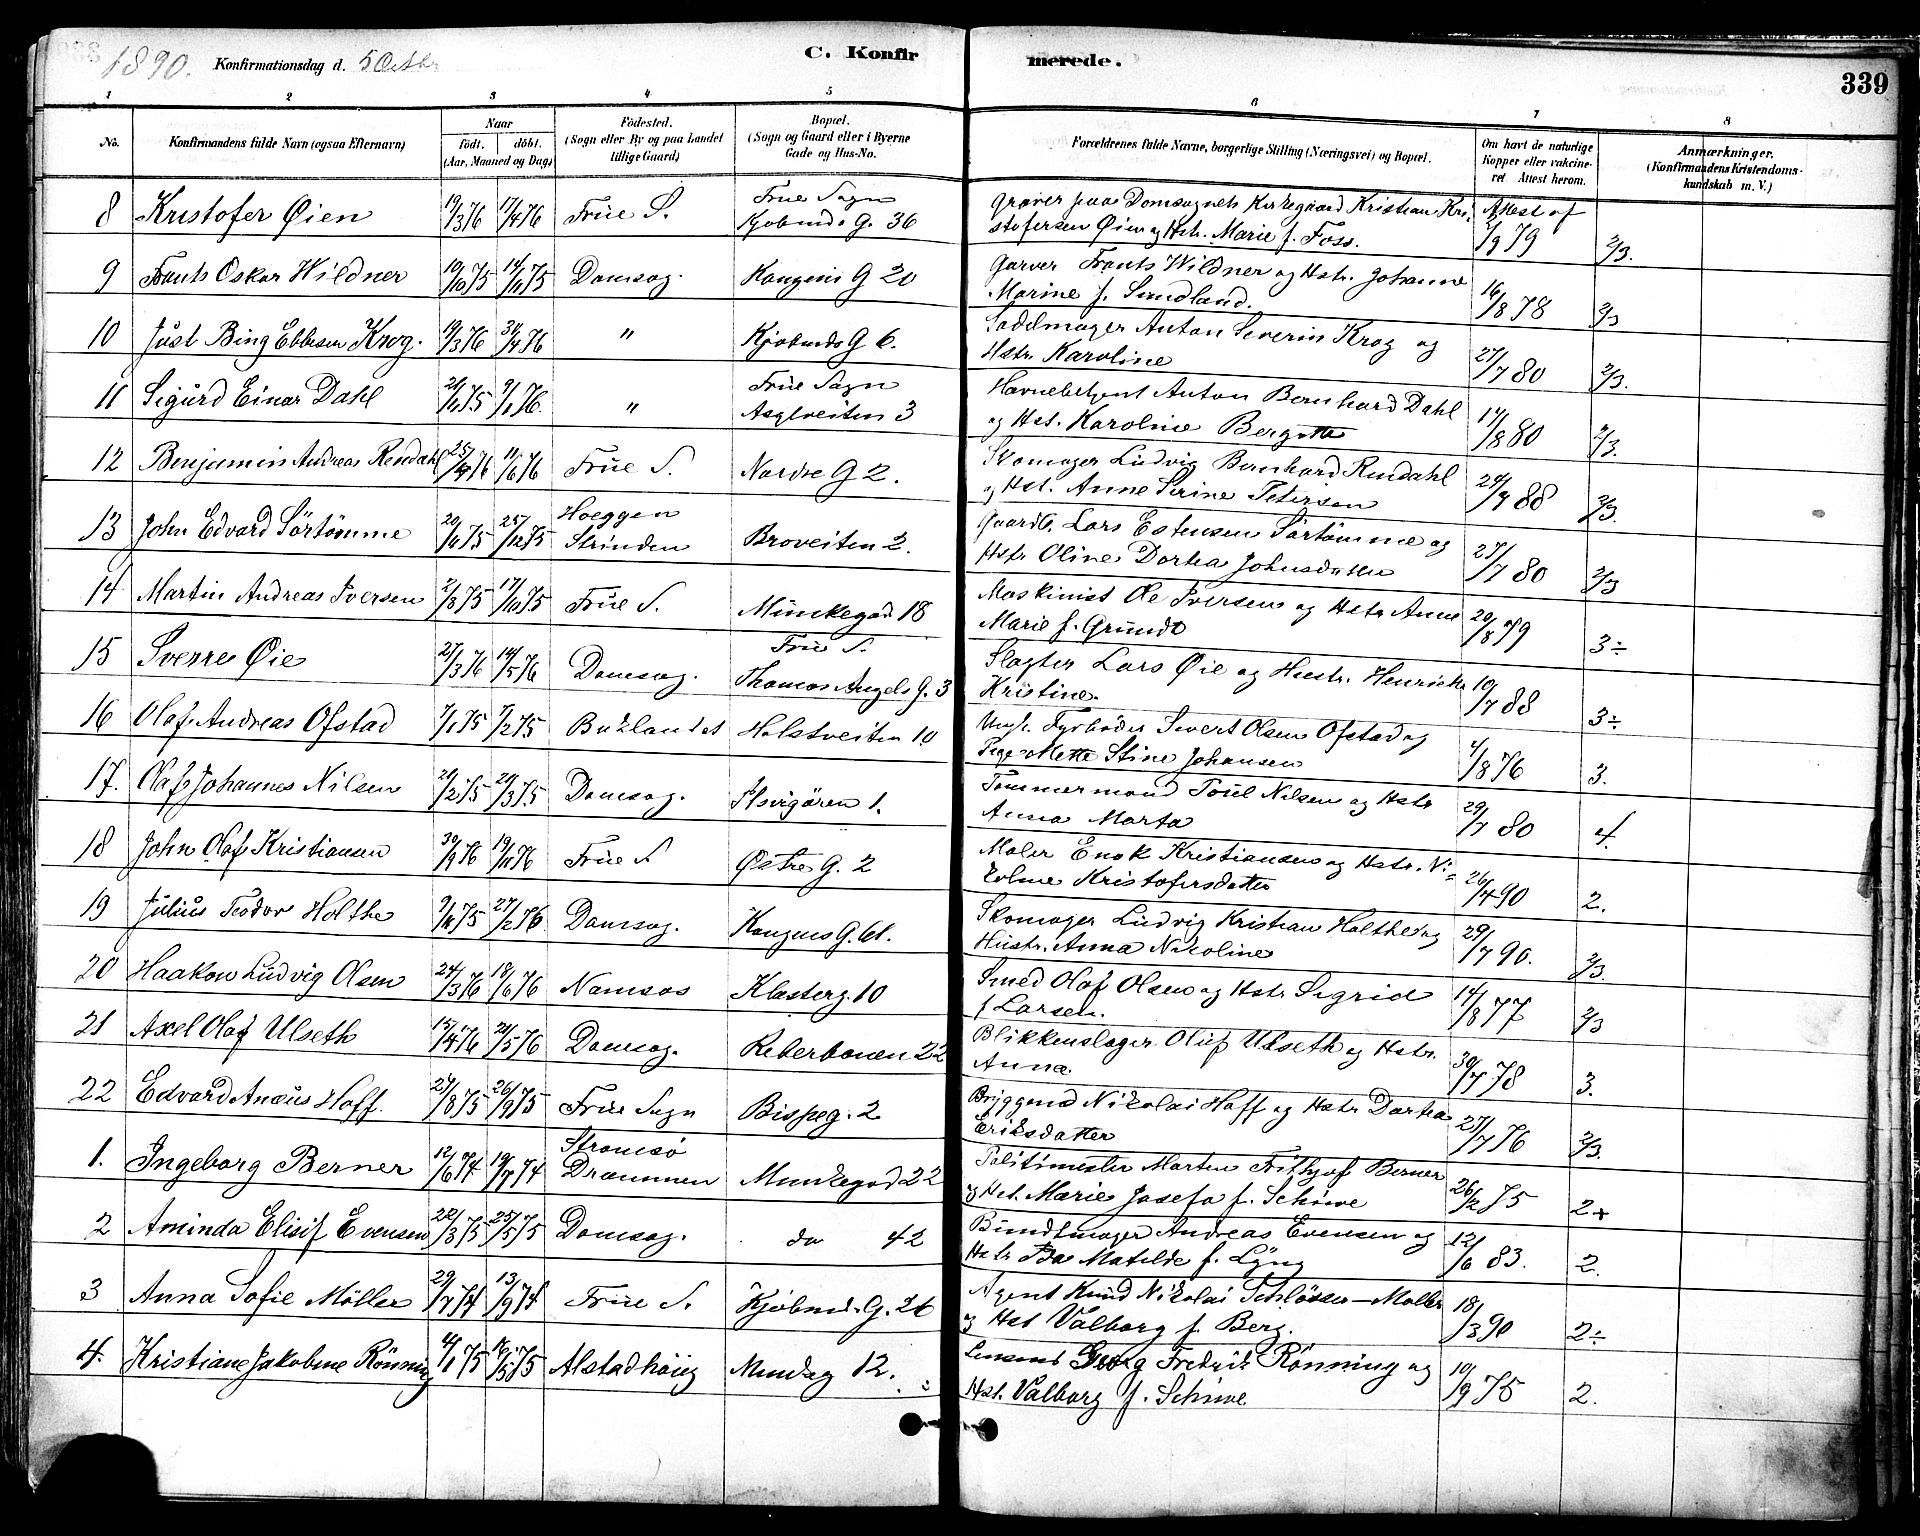 1890. Konfirmationsdag d. 5 Octbr
C. Konfirmerede.
339
1 2 3 4 5 6 7 8
No. Konfirmandens fulde Navn (ogsaa Efternavn) Naar födt. döbt. (Aar, Maaned og Dag) Födested. (Sogn eller By og paa Landet tillige Gaard) Bopæl. (Sogn og Gaard eller i Byerne Gade og Hus-No. Forældrenes fulde Navne, borgerlige Stilling (Næringsvei) og Bopæl. Om havt de naturlige Kopper eller vakcineret. Attest herom. Anmærkninger. (Konfirmandens Kristendomskundskab m. V.)
8 Kristofer Øien 19/3 76 17/4 76 Frue S. Frue Sogn Kjobmds G. 36 Graver paa Domsognets Kirkegaard Kristian Kristofersen Øien og Hstr. Marie f. Foss. Attest af 2/9 79 2/3.
9 Frants Oskar Wildner 19/10 75 14/11 75 Domsog. Kongens G 20 Garver Frants Wildner og Hstr. Johanne Marine f. Sundland. 16/8 78 2/3
10 Just Bing Ebbesen Krog. 19/3 76 30/4 76 " Kjobmds G 6. Sadelmager Anton Severin Krog og Hstr. Karoline 27/7 80 2/3.
11 Sigurd Einar Dahl 21/11 75 9/1 76. " Frue Sogn Aaslveiten 3 Havnebetjent Anton Bernhard Dahl og Hst. Karoline Bergitte 17/8 80 2/3.
12 Benjamin Andreas Rendahl 25/4 76 11/6 76 Frue S. Nordre G 2. Skomager Ludvig Bernhard Rendahl og Hst. Anne Serine Petersen 24/4 88 2/3.
13 John Edvard Sörtömme 20/11 75 25/12 75 Hoeggen Strinden Broveiten 2. Gaardb. Lars Estensen Sörtömme og Hstr Oline Dortea Johnsdatter 27/7 80 2/3
14 Martin Andreas Iversen 2/8 75 17/10 75 Frue S. Munkegad 18 Maskinist Ole Iversen og Hstr Anne Marie f. Grundt 20/8 79 3÷
15 Sverre Øie 27/3 76 14/5 76 Domsog. Frue S. Thomas Angels G. 3 Slagter Lars Øie og Hustr. Henrikke Kristine. 10/7 88 3÷
16 Olaf Andreas Ofstad 7/1 75 7/2 75 Baklandet Holstveiten 10 Ungk. Fyrböder Sivert Olsen Ofstad og Pige Mette Stine Johansen 4/8 76 3.
17. Olaf Johannes Nilsen 20/2 75 29/3 75 Domsog. Ilsvigören 1. Tömmermand Poul Nilsen og Hstr Anna Marta 29/7 80 4
18 John Olaf Kristiansen 30/9 76 19/11 76 Frue S Østre G. 2 Maler Enok Kristiansen og Hstr. Nikoline Kristofersdatter 26/4 90 2.
19 Julius Teodor Holthe 9/11 75 27/2 76 Domsog. Kongens G. 61. Skomager Ludvig Kristian Holthe og Hustr. Anna Nikoline 29/7 90. 2/3.
20 Haakon Ludvig Olsen 24/3 76 18/6 76 Namsos Klosterg. 10 Smed Olaf Olsen og Hstr Sigrid f Larsen. 14/8 77 2/3
21 Axel Olaf Ulseth 15/4 76 21/5 76 Domsog. Reberbanen 22 Blikkenslager Oluf Ulseth og Hstr. Anna. 30/7 78 3.
22 Edvard Anæus Hoff. 27/8 75 26/9 75 Frue Sogn Bispeg. 2 Bryggemd Nikolai Hoff og Hstr Dortea Eriksdatter 25/7 76 2/3.
1. Ingeborg Berner 12/6 74 19/7 74 Stromsö Drammen Munkegad 22 Politimester Morten Frithjof Berner og Hst. Marie Josefa f. Schive 26/2 75 2+
2 Aminda Elisif Evensen 22/3 75 25/5 75 Domsog. do 42 Bundtmager Andreas Evensen og Hstr Ida Matilde f. Lyng 12/6 83. 2.
3 Anna Sofie Möller 29/7 74 13/9 74 Frue S. Kjobmds. G. 26 Agent Knud Nikolai Schlösser-Möller og Hst Valborg f. Berg. 18/3 90 2÷
4. Kristiane Jakobine Rönning 4/1 75 16/5 75 Alstadhöug Mundag 12. Lensmd Georg Fredrik Rönning og Hst. Valborg f. Schive 10/9 75 2.